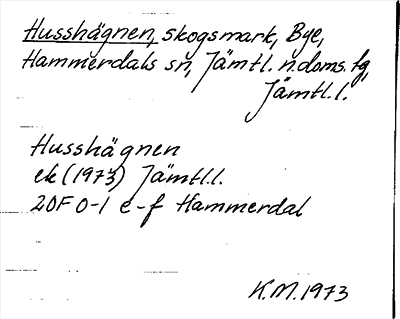 Husshägnen, skogsmark, Bye,
Hammerdals sn, Jämtl. n. doms. tg,
Jämtl. l.
Husshägnen
ek (1973) Jämtl. l.
20F 0-1 e-f Hammerdal
K.M. 1973